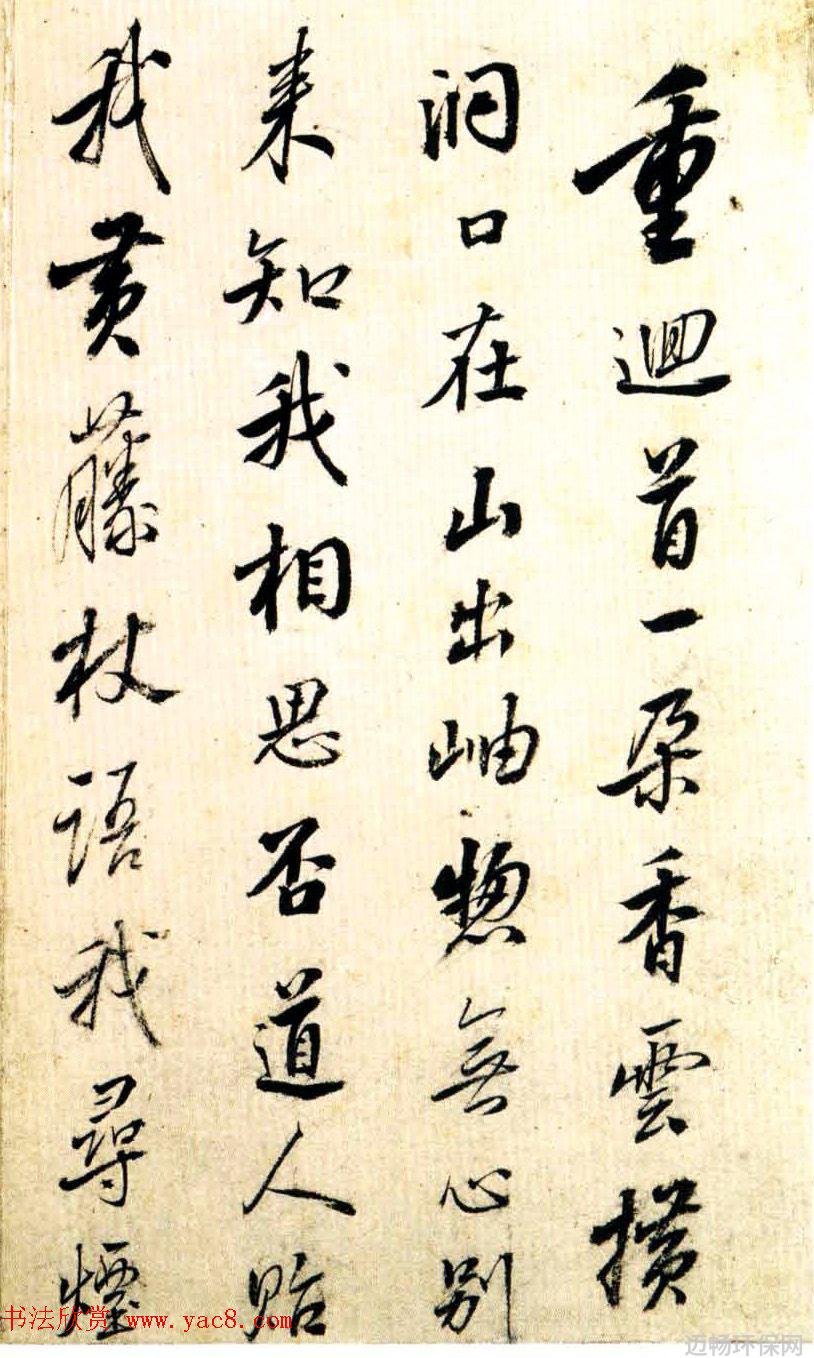 重迴首一朶香雲横
洞口在山出岫惣無心别
来知我相思否道人貽
我黄藤杖語我尋煙
书法欣赏 www.yac8.com
迈畅环保网